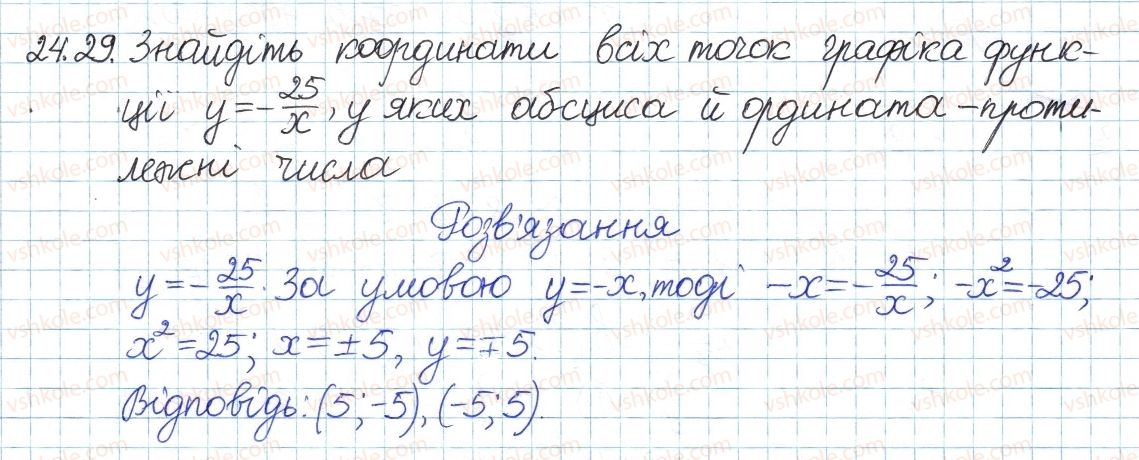 24.29. Знайдіть координати всіх точок графіка функ-
ції y=-25/x, у яких абсциса й ордината -проти-
лежні числа
Розв'язання
y=-25/x. За умовою y=-x, тоді -x=-25/x; -x²=-25;
x²=25; x=±5, y=∓5.
Відповідь: (5;-5), (-5;5).